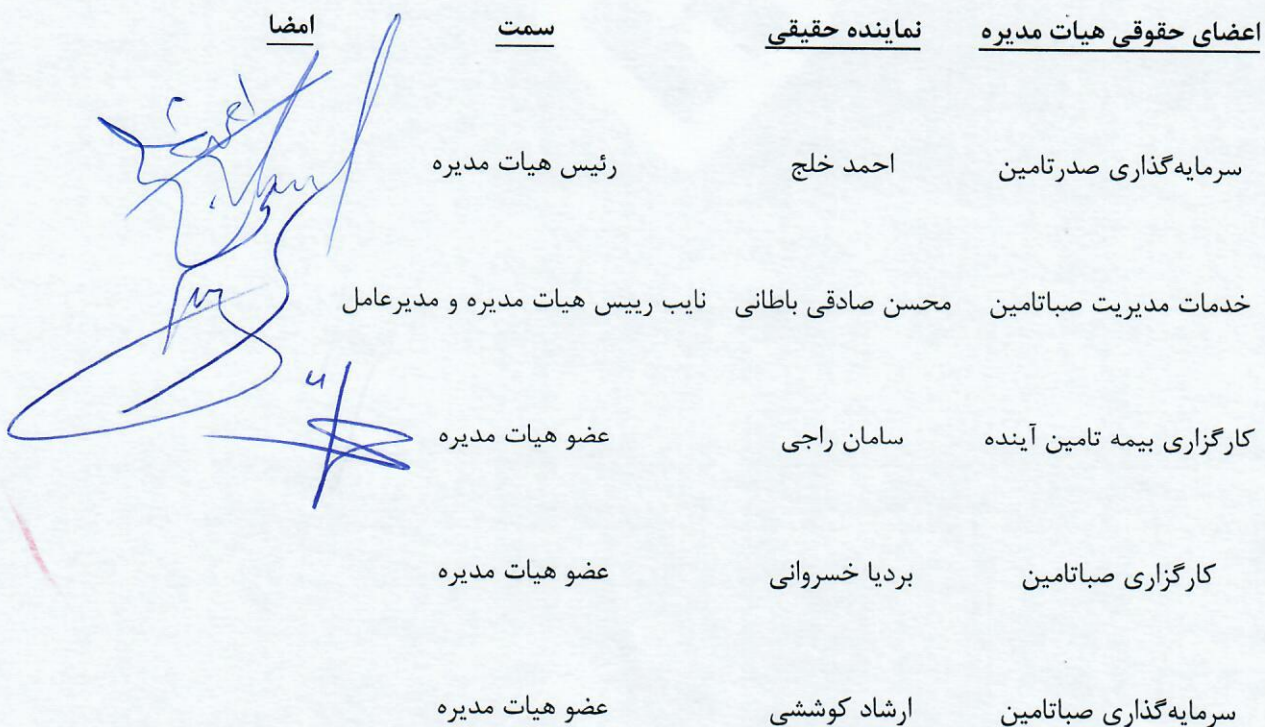 اعضای حقوقی هیات مدیره نماینده حقیقی سمت امضا
سرمایه‌گذاری صدرتامین احمد خلج رئیس هیات مدیره
خدمات مدیریت صباتامین محسن صادقی باطانی نایب رییس هیات مدیره و مدیرعامل
کارگزاری بیمه تامین آینده سامان راجی عضو هیات مدیره
کارگزاری صباتامین بردیا خسروانی عضو هیات مدیره
سرمایه‌گذاری صباتامین ارشاد کوششی عضو هیات مدیره